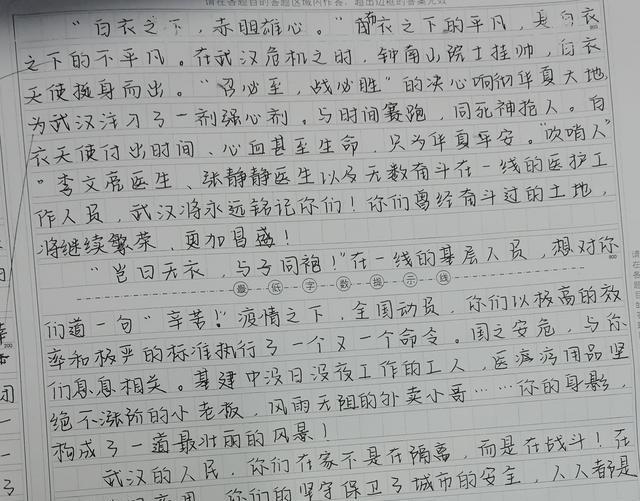 请在各题目的答题区域内作答，超出边框的答案无效
"白衣之下，赤胆雄心。"白衣之下的平凡，是白衣
之下的不平凡。在武汉危机之时，钟南山院士挂帅，白衣
天使挺身而出。"召必至，战必胜"的决心响彻华夏大地，
为武汉注习了一剂强心剂。与时间赛跑，同死神抢人。白
衣天使付出时间、心血甚至生命，只为华夏早安。"吹哨人
"李文亮医生、张静静医生以及无数奋斗在一线的医护工
作人员，武汉将永远铭记你们！你们曾经奋斗过的土地，
将继续繁荣，更加昌盛！
"岂曰无衣，与子同袍！"在一线的基层人员，想对你
最低字数提示线
们道一句"辛苦！"疫情之下，全国动员，你们以极高的效
率和极严的标准执行了一个又一个命令。国之安危，与你
们息息相关。基建中没日没夜工作的工人，医疗用品坚
绝不涨价的小老板，风雨无阻的外卖小哥……你的身影，
构成了一道最壮丽的风景！
武汉的人民，你们在家不是在隔离，而是在战斗！在
你们的坚守保卫了城市的安全，人人都是